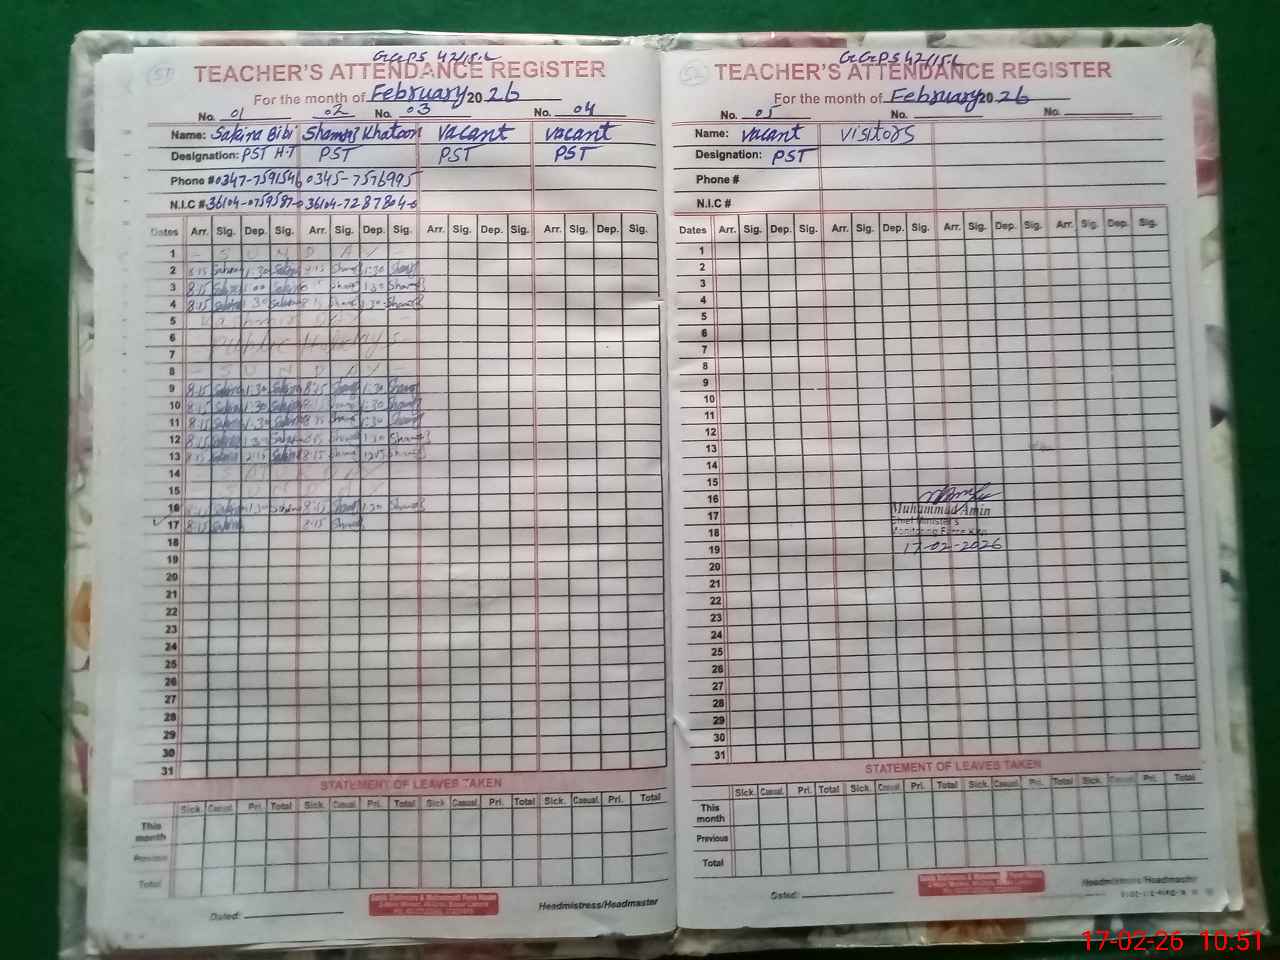 51
GGPS 42/15-L
TEACHER'S ATTENDANCE REGISTER
For the month of February 2026
No. 01 02 No. 03 No. 04
Name: Sakina Bibi Shamim Khatoon Vacant Vacant
Designation: PST H-T PST PST PST
Phone # 0347-7591546 0345-7576995
N.I.C # 36104-0759587-0 36104-7287804-6
Dates Arr. Sig. Dep. Sig. Arr. Sig. Dep. Sig. Arr. Sig. Dep. Sig. Arr. Sig. Dep. Sig.
1 - S U N D A Y -
2 8:15 Sakina 1:30 Sakina 8:15 1:30
3 8:15 Sakina 1:00 Sakina 1:30
4 8:15 Sakina 1:30 Sakina 1:30
5 Kashmir Day
6 Public Holidays
7
8 - S U N D A Y -
9 8:15 Sakina 1:30 Sakina 8:15 1:30
10 8:15 Sakina 1:30 Sakina 8:15 1:30
11 8:15 Sakina 1:30 Sakina 8:15 1:30
12 8:15 Sakina 1:30 Sakina 8:15 1:30
13 8:15 Sakina Sakina 8:15
14
15 S U N D A Y
16 8:15 Sakina 1:30 8:15 1:30
17 8:15 Sakina 8:15
18
19
20
21
22
23
24
25
26
27
28
29
30
31
STATEMENT OF LEAVES TAKEN
Sick. Casual. Pri. Total Sick. Casual. Pri. Total Sick Casual. Pri. Total Sick. Casual. Pri. Total
This month
Previous
Total
Dated:
Headmistress/Headmaster
52
GGPS 42/15-L
TEACHER'S ATTENDANCE REGISTER
For the month of February 2026
No. 05 No. No.
Name: Vacant Visitors
Designation: PST
Phone #
N.I.C #
Dates Arr. Sig. Dep. Sig. Arr. Sig. Dep. Sig. Arr. Sig. Dep. Sig. Arr. Sig. Dep. Sig.
1
2
3
4
5
6
7
8
9
10
11
12
13
14
15
16
17
18
19
20
21
22
23
24
25
26
27
28
29
30
31
Muhammad Amin
Chief Minister's
Monitoring Force
17-02-2026
STATEMENT OF LEAVES TAKEN
Sick. Casual. Pri. Total Sick. Casual. Pri. Total Sick. Casual. Pri. Total Sick. Casual. Pri. Total
This month
Previous
Total
Dated:
Headmistress/Headmaster
17-02-26 10:51